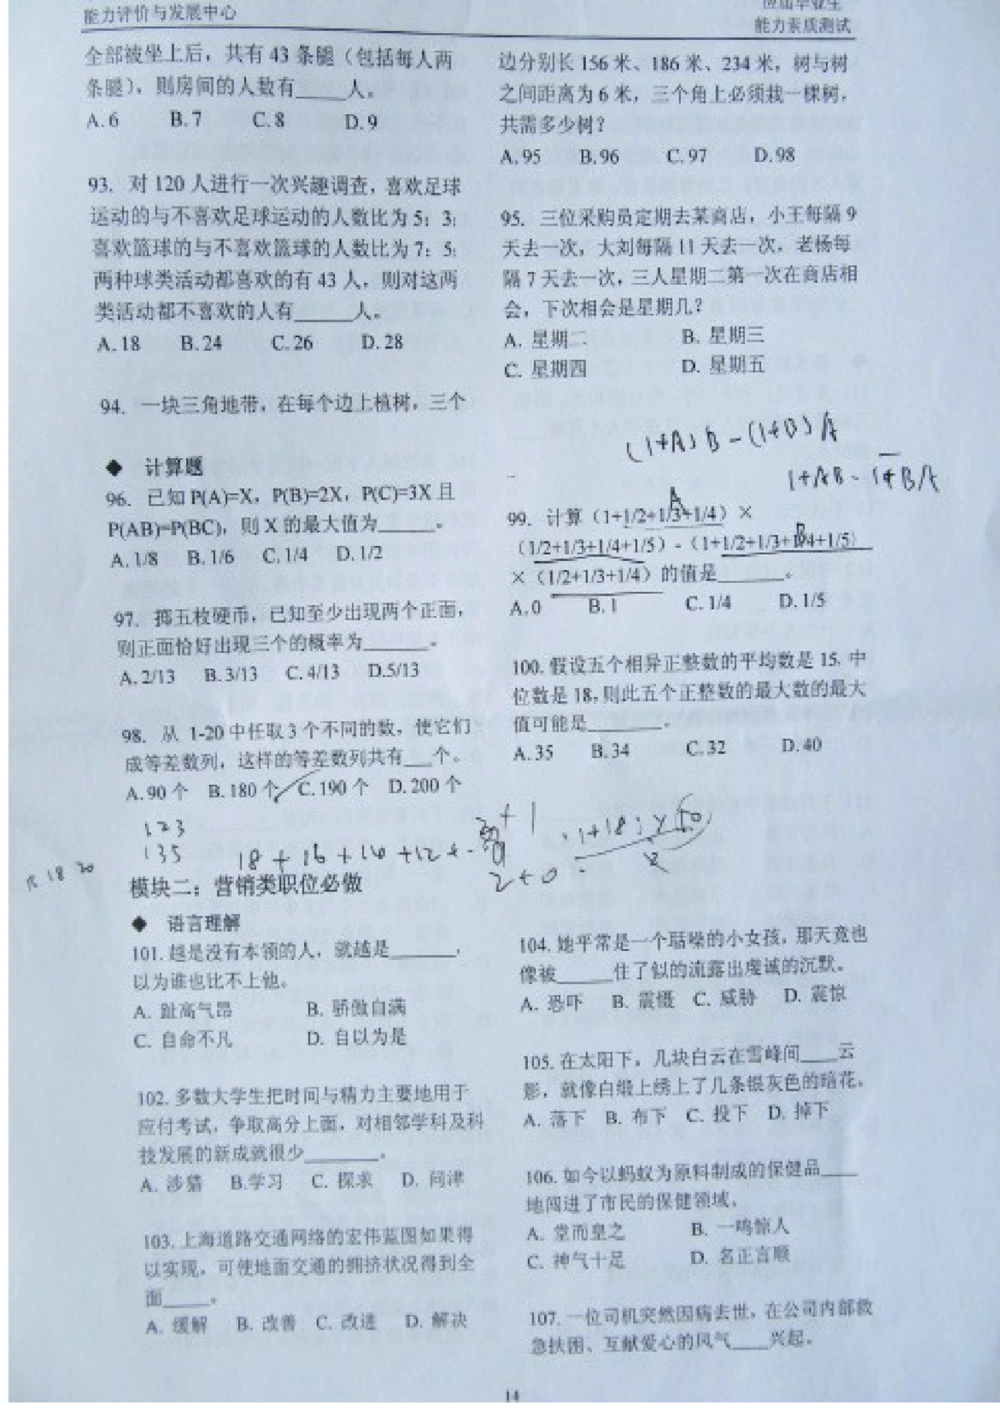 能力评价与发展中心
应届毕业生
能力素质测试
全部被坐上后，共有 43 条腿（包括每人两
条腿），则房间的人数有____人。
A.6 B.7 C.8 D.9
93. 对 120 人进行一次兴趣调查，喜欢足球
运动的与不喜欢足球运动的人数比为 5：3；
喜欢篮球的与不喜欢篮球的人数比为 7：5；
两种球类活动都喜欢的有 43 人，则对这两
类活动都不喜欢的人有_____人。
A.18 B.24 C.26 D.28
94. 一块三角地带，在每个边上植树，三个
边分别长 156 米、186 米、234 米，树与树
之间距离为 6 米，三个角上必须栽一棵树，
共需多少树？
A.95 B.96 C.97 D.98
95. 三位采购员定期去某商店，小王每隔 9
天去一次，大刘每隔 11 天去一次，老杨每
隔 7 天去一次，三人星期二第一次在商店相
会，下次相会是星期几？
A. 星期二 B. 星期三
C. 星期四 D. 星期五
◆ 计算题
96. 已知 P(A)=X，P(B)=2X，P(C)=3X 且
P(AB)=P(BC)，则 X 的最大值为_____。
A. 1/8 B. 1/6 C. 1/4 D. 1/2
97. 掷五枚硬币，已知至少出现两个正面，
则正面恰好出现三个的概率为______。
A. 2/13 B. 3/13 C. 4/13 D.5/13
98. 从 1-20 中任取 3 个不同的数，使它们
成等差数列，这样的等差数列共有___个。
A. 90 个 B. 180 个 C. 190 个 D. 200 个
1 2 3
1 3 5
18 20
18 + 16 + 14 + 12 +
(1+A)B-(1+B)A
1+AB-1+BA
A
B
99. 计算（1+1/2+1/3+1/4）×
（1/2+1/3+1/4+1/5）-（1+1/2+1/3+1/4+1/5）
×（1/2+1/3+1/4）的值是______。
A.0 B.1 C. 1/4 D. 1/5
100. 假设五个相异正整数的平均数是 15，中
位数是 18，则此五个正整数的最大数的最大
值可能是______。
A.35 B.34 C.32 D.40
2+0
模块二：营销类职位必做
◆ 语言理解
101. 越是没有本领的人，就越是______，
以为谁也比不上他。
A. 趾高气昂 B. 骄傲自满
C. 自命不凡 D. 自以为是
102. 多数大学生把时间与精力主要地用于
应付考试，争取高分上面，对相邻学科及科
技发展的新成就很少_______。
A. 涉猎 B.学习 C. 探求 D. 问津
103. 上海道路交通网络的宏伟蓝图如果得
以实现，可使地面交通的拥挤状况得到全
面____。
A. 缓解 B. 改善 C. 改进 D. 解决
104. 她平常是一个聒噪的小女孩，那天竟也
像被_____住了似的流露出虔诚的沉默。
A. 恐吓 B. 震慑 C. 威胁 D. 震惊
105. 在太阳下，几块白云在雪峰间___云
影，就像白缎上绣上了几条银灰色的暗花。
A. 落下 B. 布下 C. 投下 D. 掉下
106. 如今以蚂蚁为原料制成的保健品___
地闯进了市民的保健领域。
A. 堂而皇之 B. 一鸣惊人
C. 神气十足 D. 名正言顺
107. 一位司机突然因病去世，在公司内部救
急扶困、互献爱心的风气___兴起。
14